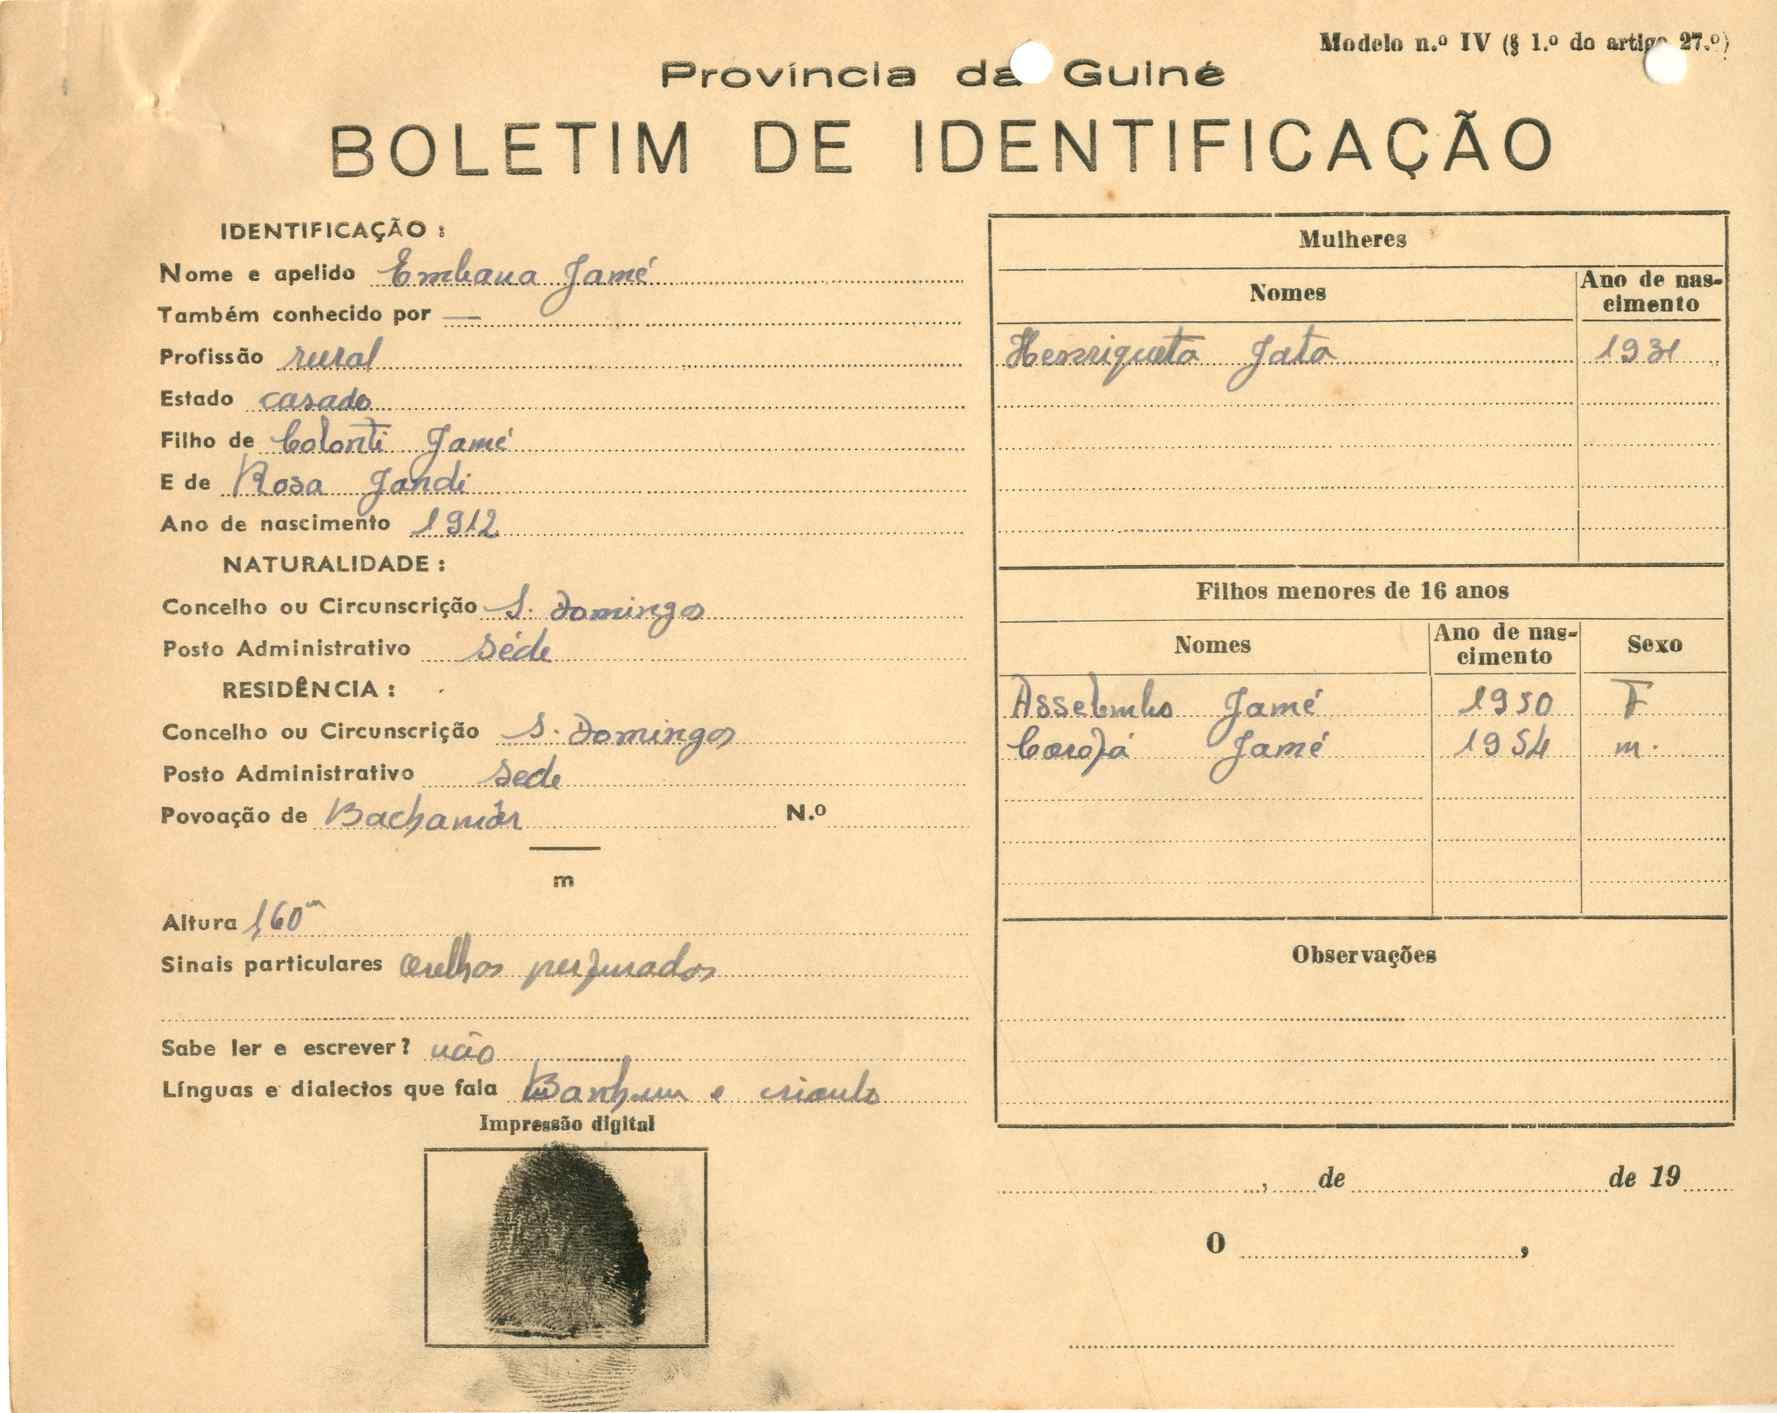 Modelo n.º IV (§ 1.º do artigo 27.º)
Província da Guiné
BOLETIM DE IDENTIFICAÇÃO
IDENTIFICAÇÃO :
Nome e apelido Embana Jamé
Também conhecido por —
Profissão rural
Estado casado
Filho de Colonti Jamé
E de Rosa Jandi
Ano de nascimento 1912
NATURALIDADE :
Concelho ou Circunscrição S. Domingos
Posto Administrativo séde
RESIDÊNCIA :
Concelho ou Circunscrição S. Domingos
Posto Administrativo sede
Povoação de Bachamór N.º
m
Altura 1,60m
Sinais particulares orelhas perfuradas
Sabe ler e escrever? não
Línguas e dialectos que fala Banhum e crioulo
Impressão digital
Mulheres
Nomes Ano de nas-
cimento
Henriqueta Jata 1931
Filhos menores de 16 anos
Nomes Ano de nas-
cimento Sexo
Jamé 1950 F
Jamé 1954 m.
Observações
, de de 19
O ,